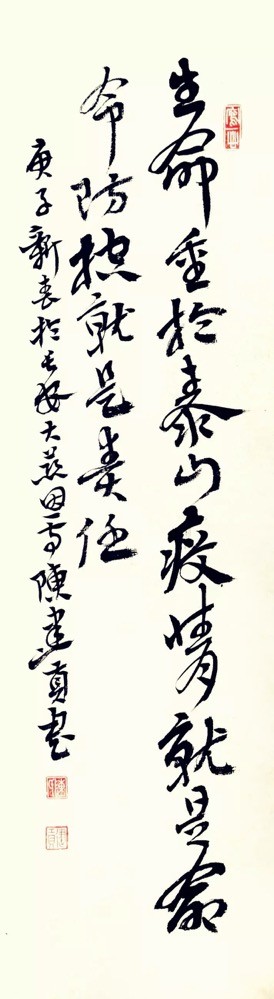 生命重於泰山疫情就是命
令防控就是责任
庚子新春於长安大燕田雩陳建貢书